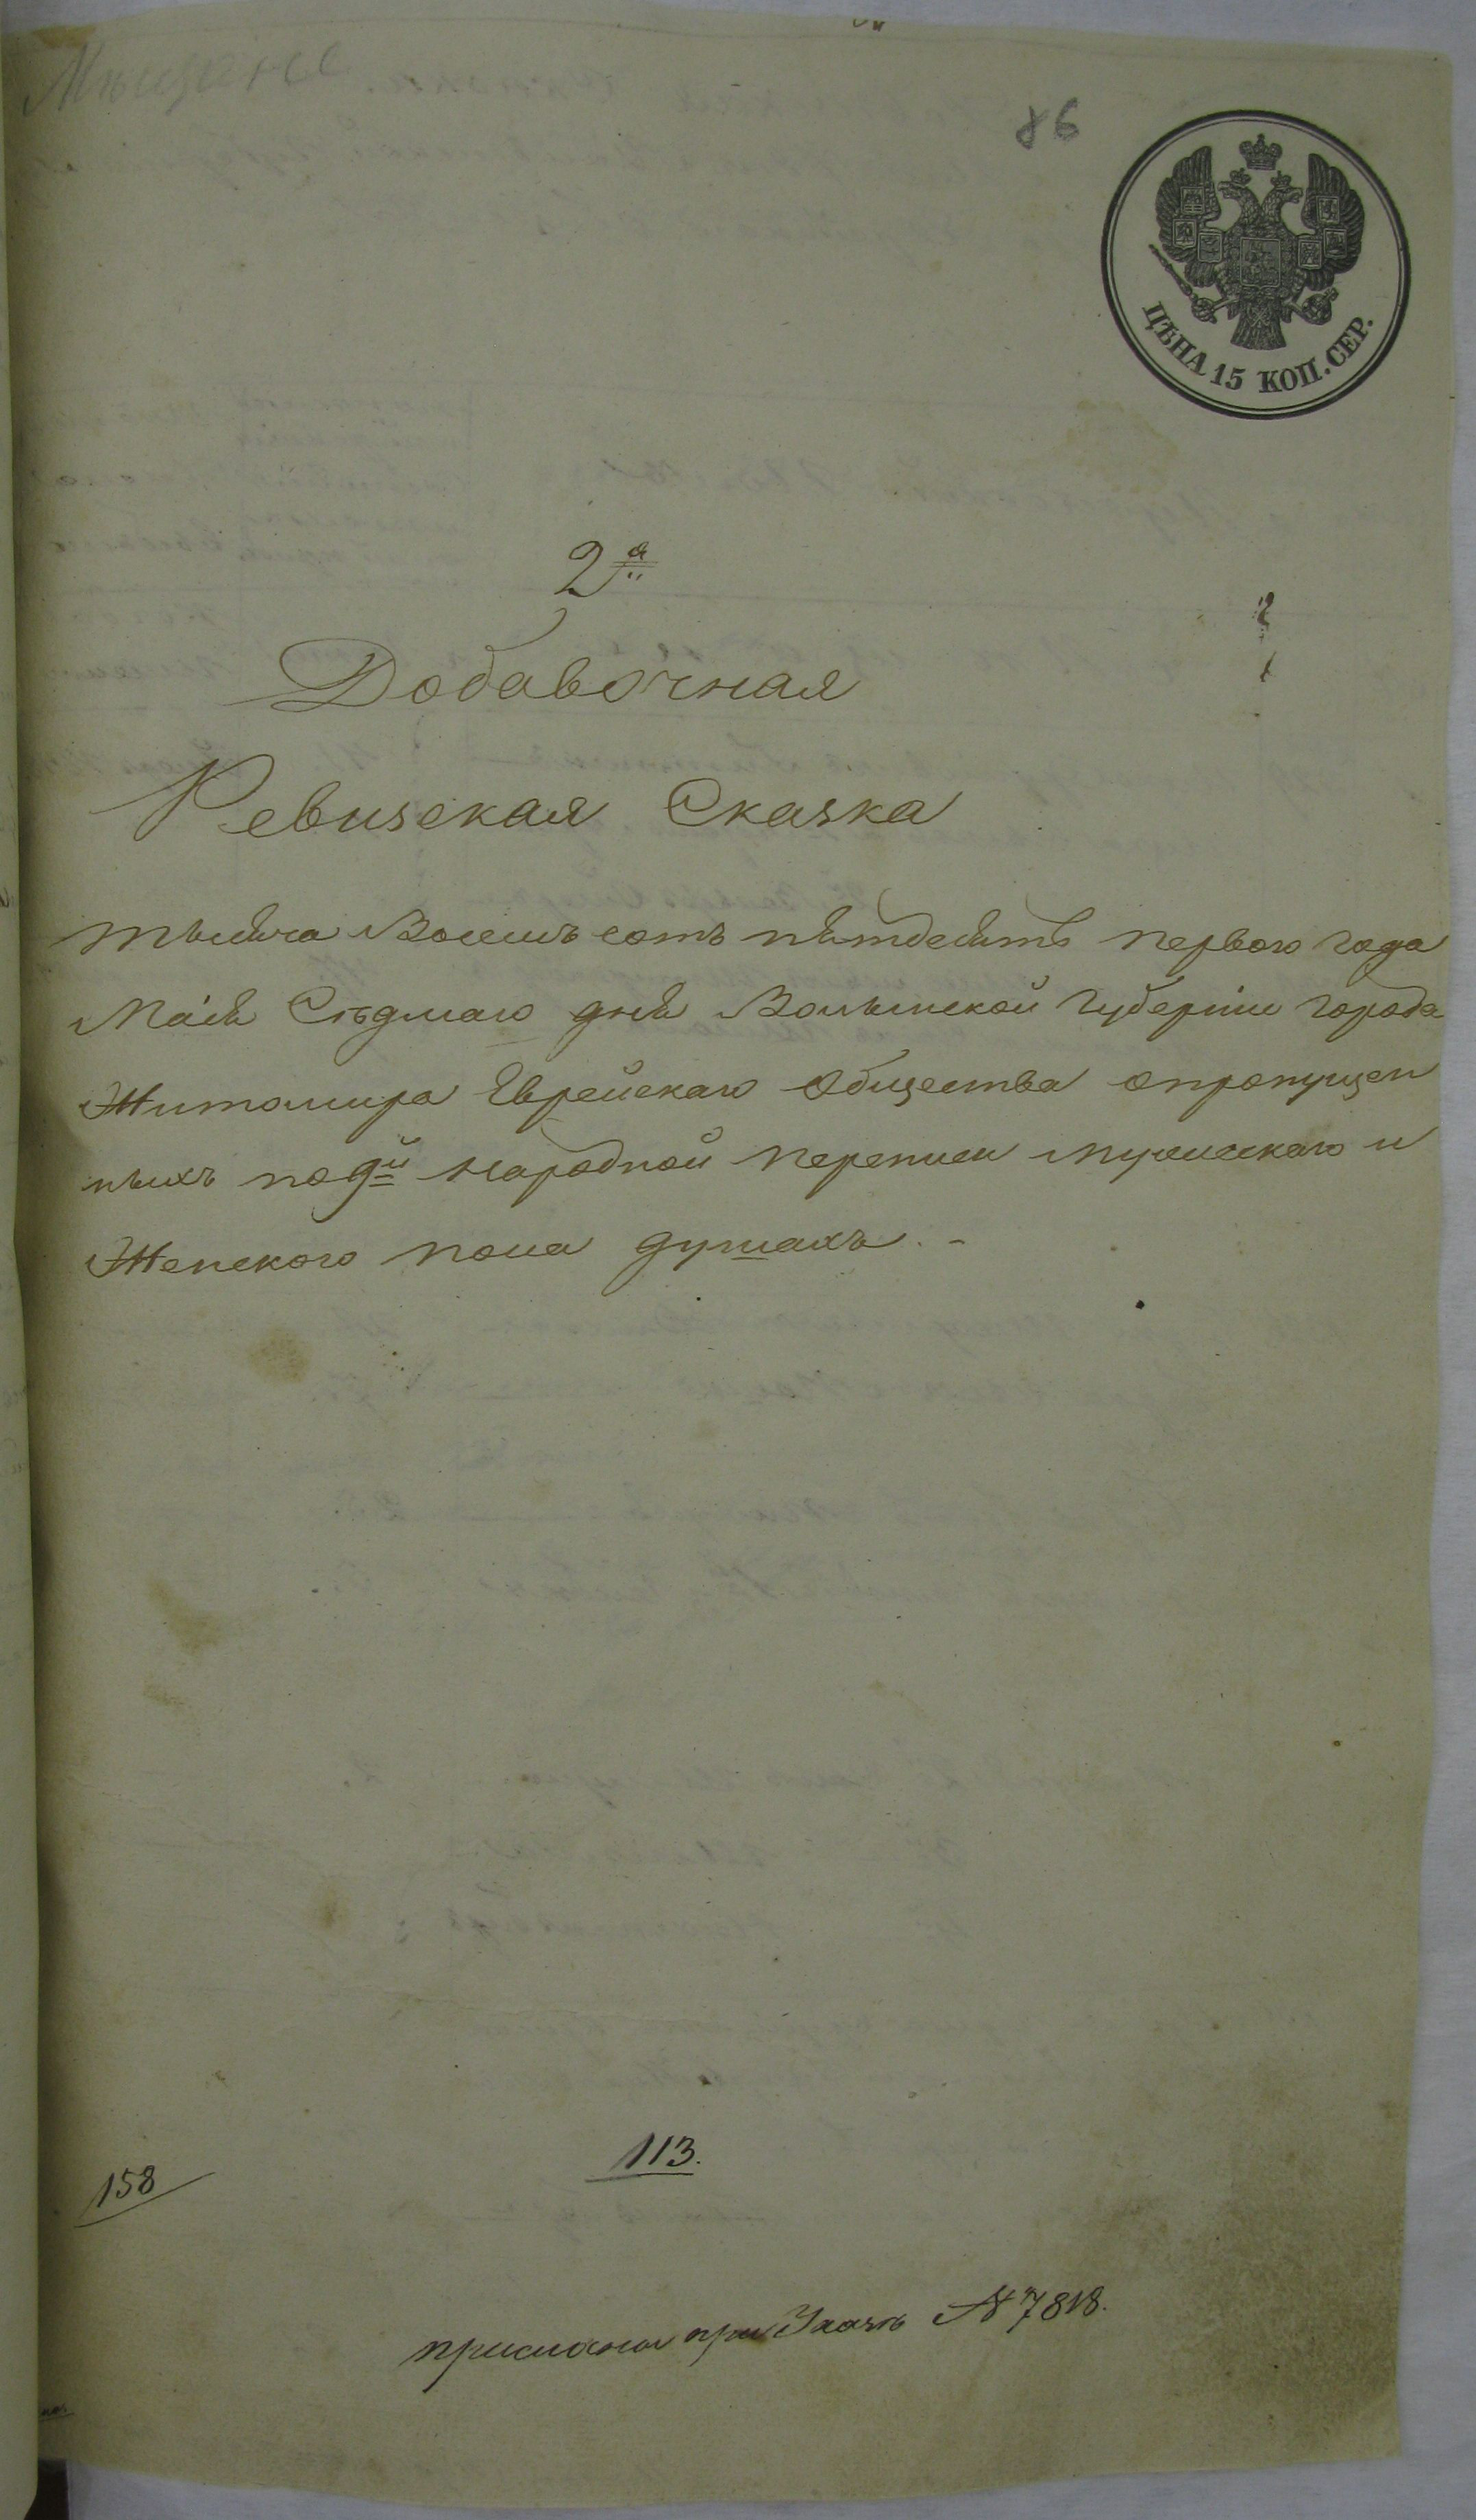 Мѣщане
86
ЦѢНА 15 КОП. СЕР.
2я
Добавочная
Ревизская Сказка
тысяча Восемъ сотъ пятдесятъ первого года
Мая Съдмаго дня Волынской Губерніи города
Житомира Еврейскаго Общества опропущен
ныхъ по 9й народной переписи мужескаго и
Женского пола душахъ. -
113.
158
присланы при Указѣ № 7818.